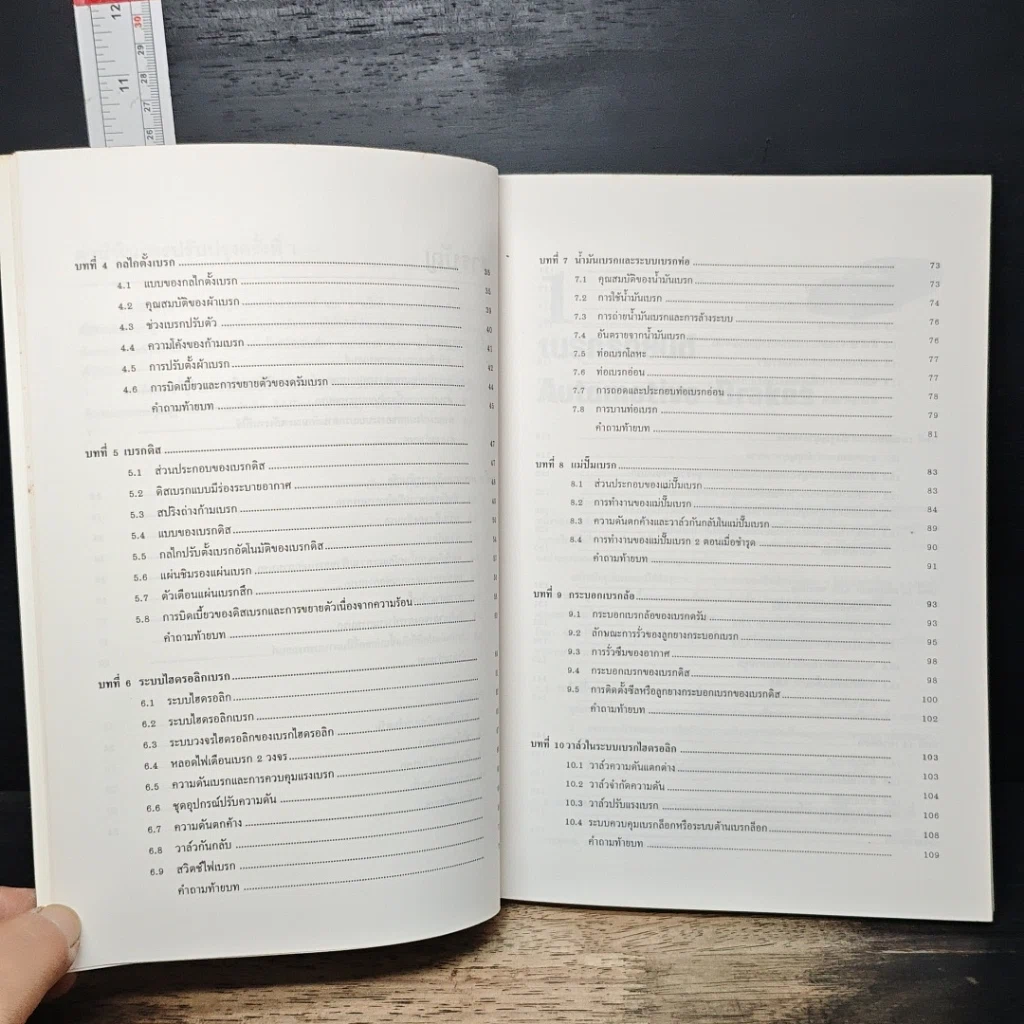 12
30
29
28
11
27
26
บทที่ 4 กลไกตั้งเบรก
4.1 แบบของกลไกตั้งเบรก
4.2 คุณสมบัติของผ้าเบรก
4.3 ช่วงเบรกปรับตัว 40
4.4 ความโค้งของก้ามเบรก 41
4.5 การปรับตั้งผ้าเบรก 42
4.6 การบิดเบี้ยวและการขยายตัวของดรัมเบรก 44
คำถามท้ายบท 45
บทที่ 5 เบรกดิส 47
5.1 ส่วนประกอบของเบรกดิส
5.2 ดิสเบรกแบบมีร่องระบายอากาศ
5.3 สปริงถ่างก้ามเบรก
5.4 แบบของเบรกดิส
5.5 กลไกปรับตั้งเบรกอัตโนมัติของเบรกดิส
5.6 แผ่นชิมรองแผ่นเบรก
5.7 ตัวเตือนแผ่นเบรกสึก
5.8 การบิดเบี้ยวของดิสเบรกและการขยายตัวเนื่องจากความร้อน
คำถามท้ายบท
บทที่ 6 ระบบไฮดรอลิกเบรก
6.1 ระบบไฮดรอลิก
6.2 ระบบไฮดรอลิกเบรก
6.3 ระบบวงจรไฮดรอลิกของเบรกไฮดรอลิก
6.4 หลอดไฟเตือนเบรก 2 วงจร
6.5 ความดันเบรกและการควบคุมแรงเบรก
6.6 ชุดอุปกรณ์ปรับความดัน
6.7 ความดันตกค้าง
6.8 วาล์วกันกลับ
6.9 สวิตช์ไฟเบรก
คำถามท้ายบท
บทที่ 7 น้ำมันเบรกและระบบเบรกท่อ 73
7.1 คุณสมบัติของน้ำมันเบรก 73
7.2 การใช้น้ำมันเบรก 74
7.3 การถ่ายน้ำมันเบรกและการล้างระบบ 76
7.4 อันตรายจากน้ำมันเบรก 76
7.5 ท่อเบรกโลหะ 77
7.6 ท่อเบรกอ่อน 77
7.7 การถอดและประกอบท่อเบรกอ่อน 78
7.8 การบานท่อเบรก 79
คำถามท้ายบท 81
บทที่ 8 แม่ปั๊มเบรก 83
8.1 ส่วนประกอบของแม่ปั๊มเบรก 83
8.2 การทำงานของแม่ปั๊มเบรก 84
8.3 ความดันตกค้างและวาล์วกันกลับในแม่ปั๊มเบรก 89
8.4 การทำงานของแม่ปั๊มเบรก 2 ตอนเมื่อชำรุด 90
คำถามท้ายบท 91
บทที่ 9 กระบอกเบรกล้อ 93
9.1 กระบอกเบรกล้อของเบรกดรัม 93
9.2 ลักษณะการรั่วของลูกยางกระบอกเบรก 95
9.3 การรั่วซึมของอากาศ 98
9.4 กระบอกเบรกของเบรกดิส 98
9.5 การติดตั้งซีลหรือลูกยางกระบอกเบรกของเบรกดิส 100
คำถามท้ายบท 102
บทที่ 10 วาล์วในระบบเบรกไฮดรอลิก 103
10.1 วาล์วความดันแตกต่าง 103
10.2 วาล์วจำกัดความดัน 104
10.3 วาล์วปรับแรงเบรก 106
10.4 ระบบควบคุมเบรกล็อกหรือระบบต้านเบรกล็อก 108
คำถามท้ายบท 109